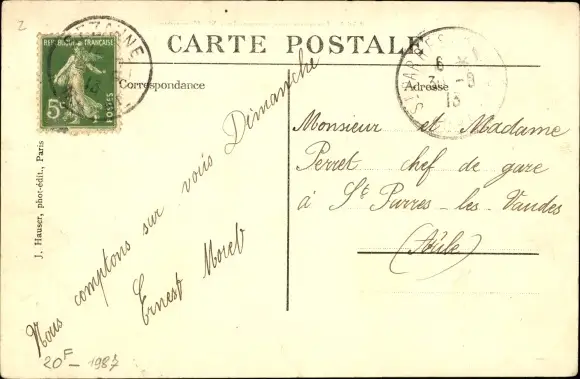 Z
CARTE POSTALE
REPUBLIQUE FRANÇAISE
5c
POSTES
SEZANNE
Correspondance
Adresse
6
30 -9
13
Nous comptons sur vous Dimanche
Ernest Moreb
Monsieur et Madame
Perret chef de gare
à St Parres - les - Vaudes
(Aube)
J. Hauser, phot-édit., Paris
20F - 1987